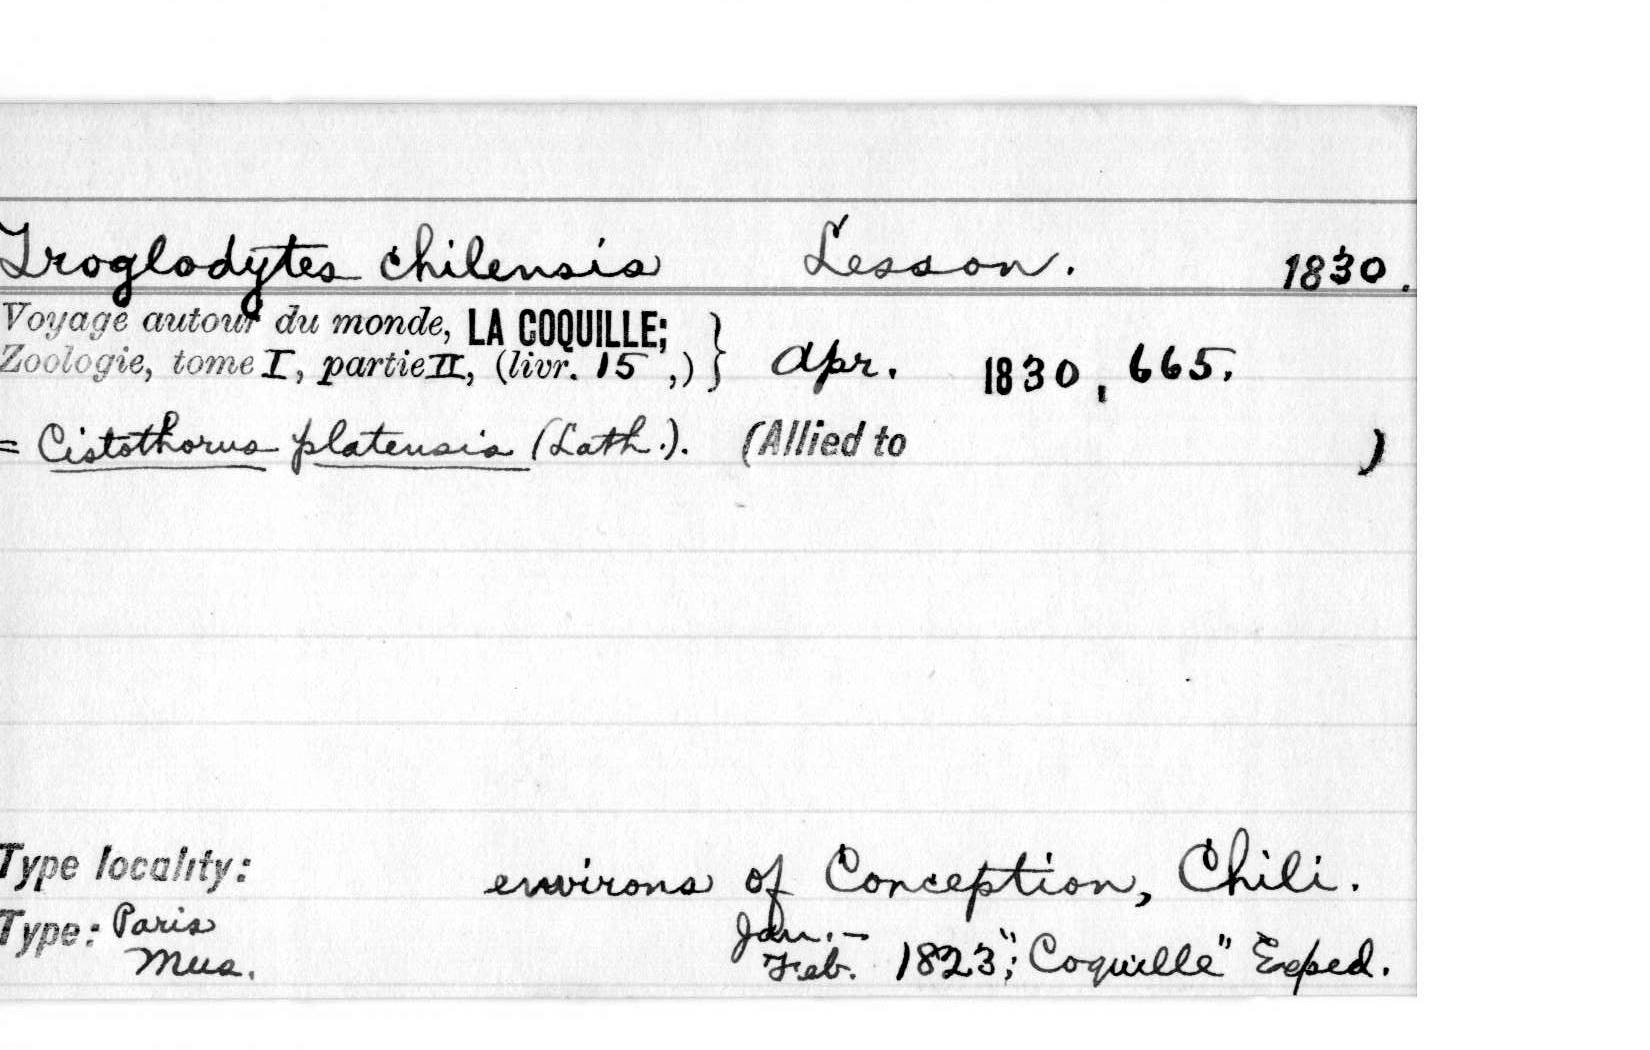 Troglodytes chilensis Lesson. 1830.
Voyage autour du monde, LA COQUILLE;
Zoologie, tome I, partie II, (livr. 15 ,) } Apr. 1830, 665.
= Cistothorus platensis (Lath.). (Allied to )
Type locality: environs of Conception, Chili.
Type: Paris Jan. –
Mus. Feb. 1823; "Coquille" Exped.